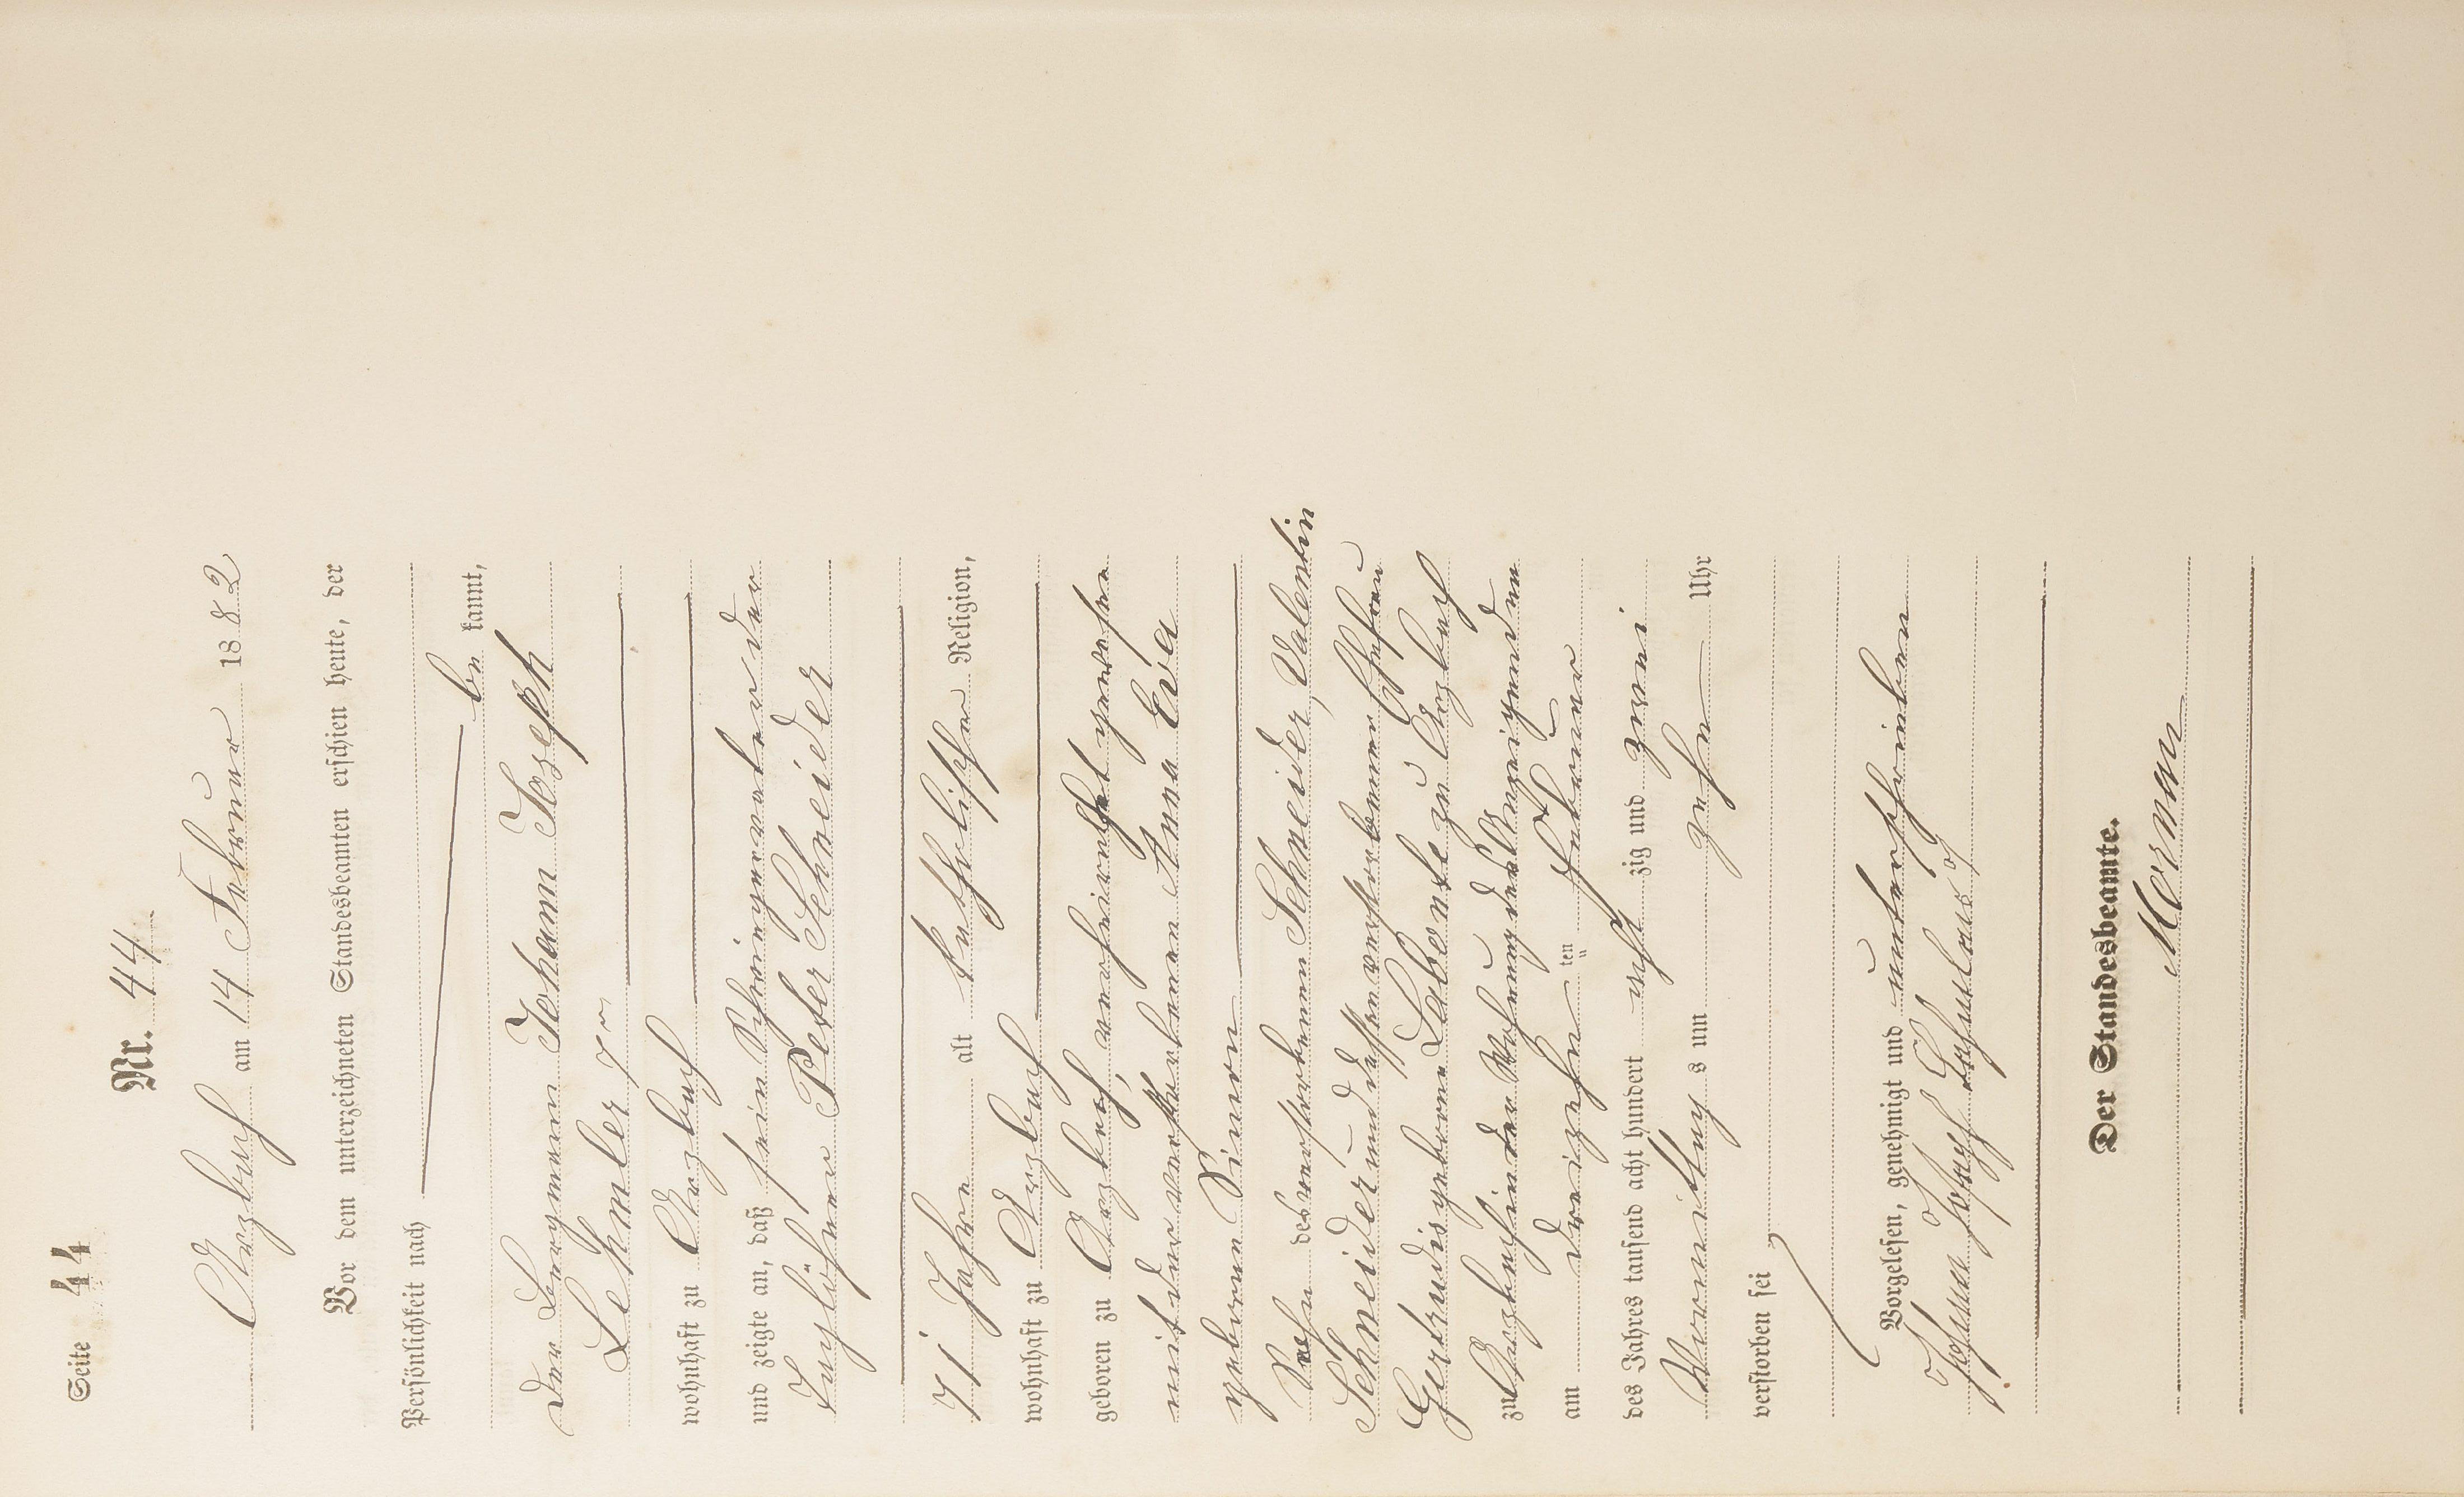 Seite 44
Nr. 44
Arzbach am 14 Februar 1882
Vor dem unterzeichneten Standesbeamten erschien heute, der
Persönlichkeit nach
be kannt,
der Bergmann Johann Joseph
Lehmler
wohnhaft zu Arzbach
und zeigte an, daß sein Schwiegervater der
Taglöhner Peter Schneider
71 Jahre alt katholischer Religion,
wohnhaft zu Arzbach
geboren zu Arzbach, verheirathet gewesen
mit der verstorbenen Anna Eva
geborene Simon
Sohn des verstorbenen Schneider, Valentin
Schneider und dessen verstorbenen Ehefrau
Gertrudis geborene Labonte zu Arzbach
zu Arzbach in der Wohnung des Anzeigenden
am dreizehn ten Februar
des Jahres tausend acht hundert acht zig und zwei
Vormittag s um zehn Uhr
verstorben sei
Vorgelesen, genehmigt und unterschrieben
Johann Joseph
Der Standesbeamte.